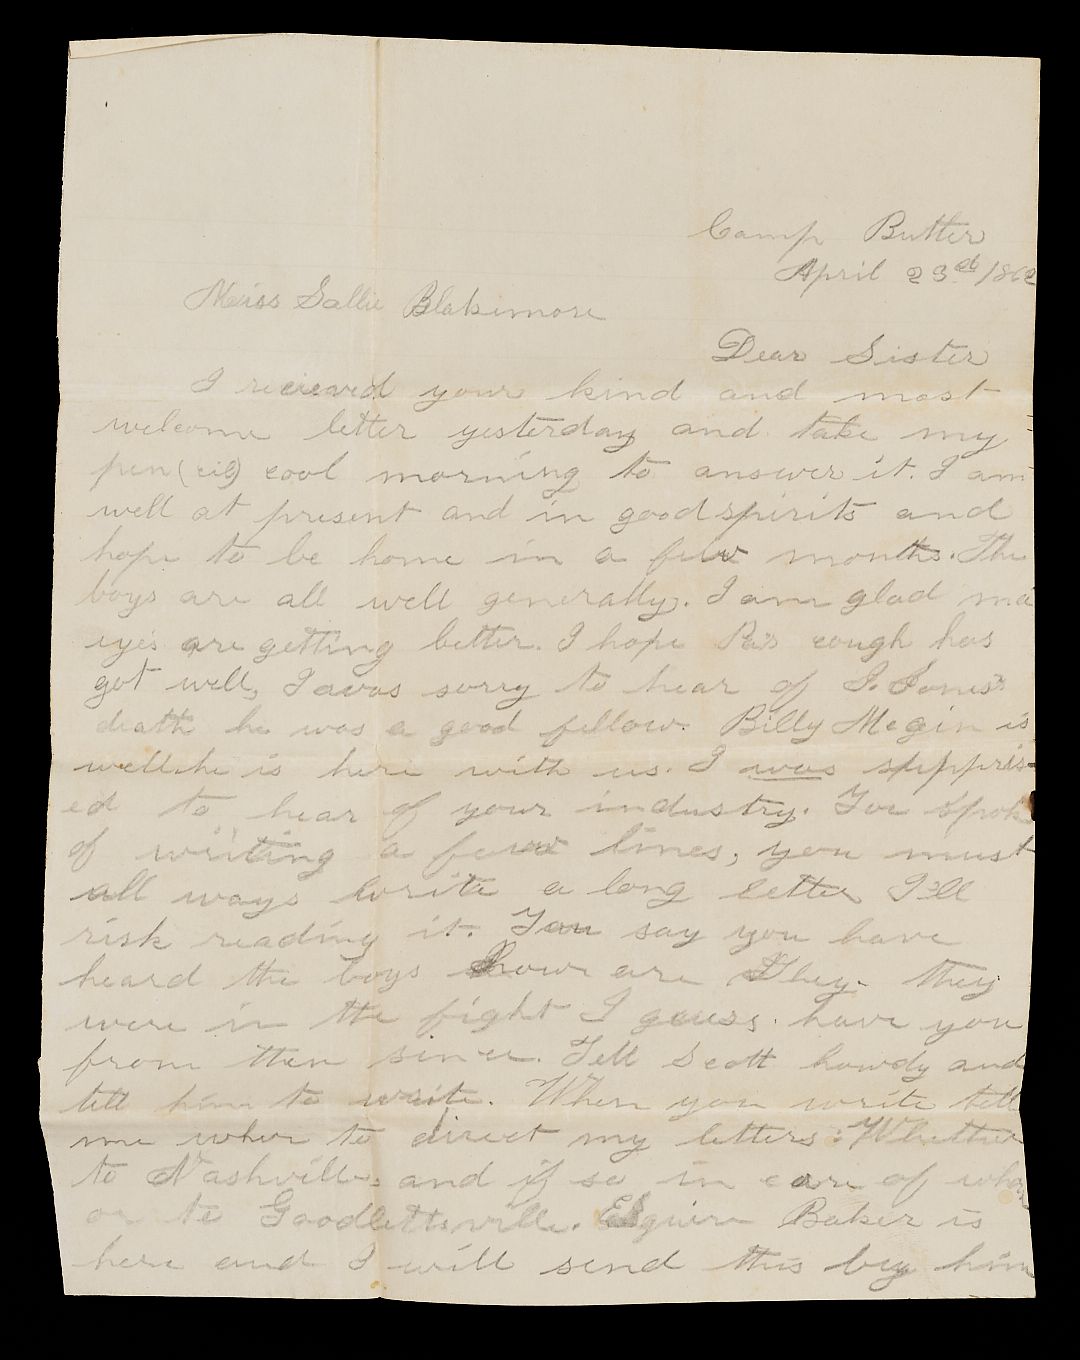 Camp Butler
April 23rd 1862
Miss Sallie Blakemore
Dear Sister
I recieved your kind and most
welcome letter yesterday and take my
pen(cil) cool morning to answer it. I am
well at present and in good spirits and
hope to be home in a few months. The
boys are all well generally. I am glad ma
eye's are getting better. I hope Pa's cough has
got well, I was sorry to hear of J. Jones'
death he was a good fellow. Billy Megin is
well he is here with us. I was suppris-
ed to hear of your industry. You spok
of writing a few lines, you must
all ways write a long letter I'll
risk reading it. You say you have
heard the boys how are they. they
were in the fight I guess. have you
from then since. Tell Scott howdy and
tell him to write. When you write tell
me wher to direct my letters: Whether
to Nashville, and if so in care of whom
or to Goodlettsville. Esquire Baker is
here and I will send this by him